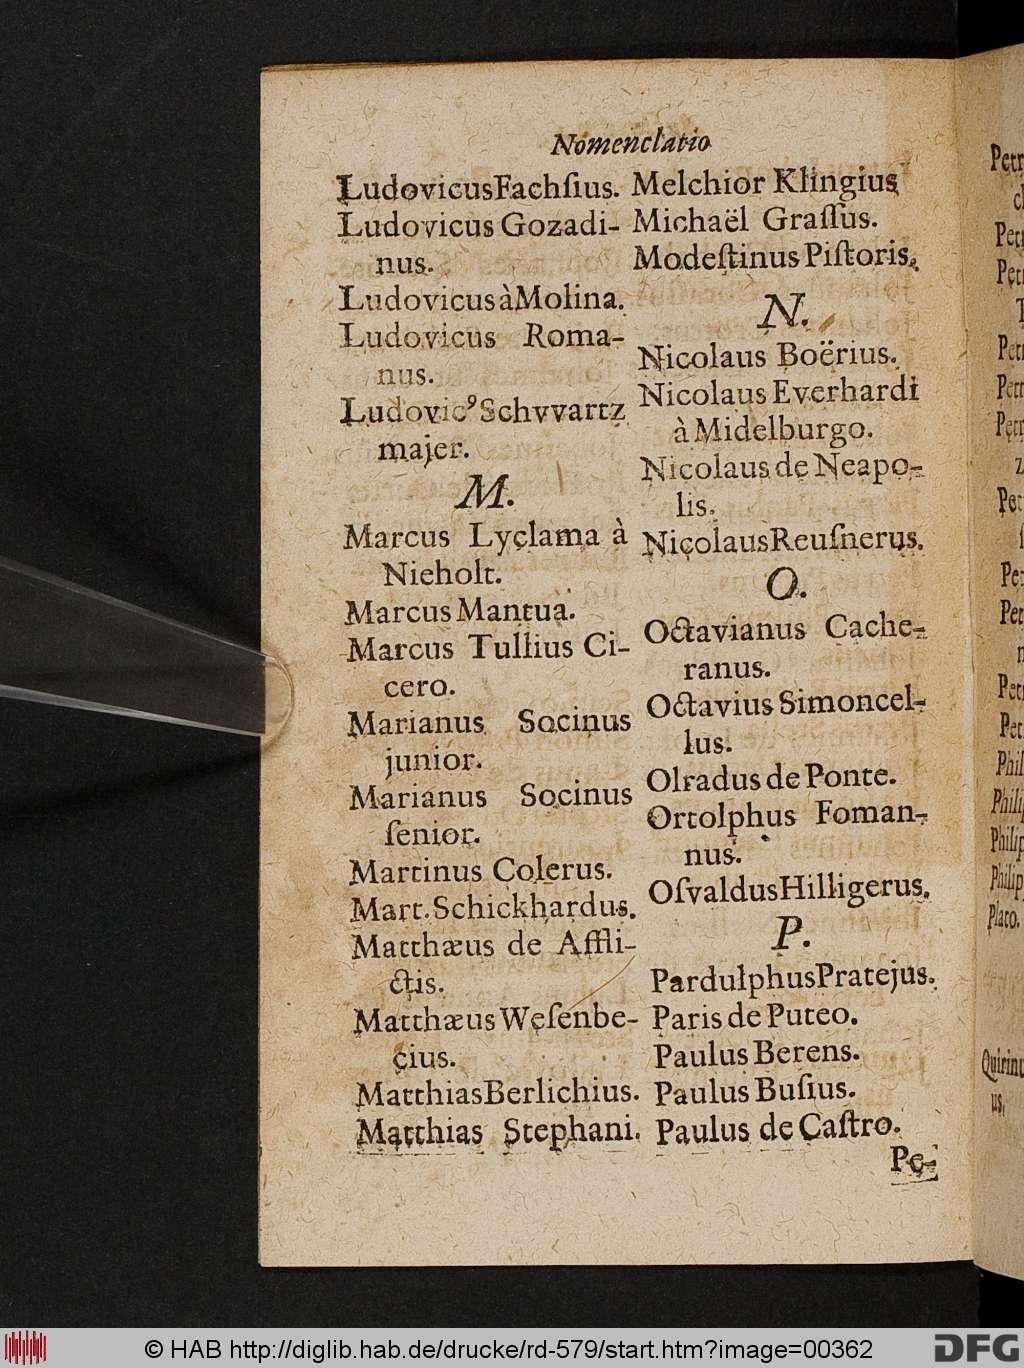 Nomenclatio
Ludovicus Fachſius.
Ludovicus Gozadi-
nus.
Ludovicus à Molina.
Ludovicus Roma-
nus.
Ludovicꝰ Schvvartz
majer.
M.
Marcus Lyclama à
Nieholt.
Marcus Mantua.
Marcus Tullius Ci-
cero.
Marianus Socinus
junior.
Marianus Socinus
ſenior.
Martinus Colerus.
Mart. Schickhardus.
Matthæus de Affli-
ctis.
Matthæus Weſenbe-
cius.
Matthias Berlichius.
Matthias Stephani.
Melchior Klingius
Michaël Graſſus.
Modeſtinus Piſtoris.
N.
Nicolaus Boërius.
Nicolaus Everhardi
à Midelburgo.
Nicolaus de Neapo-
lis.
Nicolaus Reuſnerus.
O.
Octavianus Cache-
ranus.
Octavius Simoncel-
lus.
Olradus de Ponte.
Ortolphus Foman-
nus.
Oſvaldus Hilligerus.
P.
Pardulphus Pratejus.
Paris de Puteo.
Paulus Berens.
Paulus Buſius.
Paulus de Caſtro.
Pe-
Plato.
© HAB http://diglib.hab.de/drucke/rd-579/start.htm?image=00362
DFG